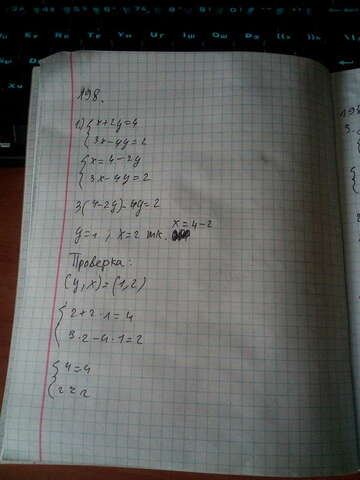 198.
1) { x+2y=4
3x-4y=2
{ x=4-2y
3x-4y=2
3(4-2y)-4y=2
y=1; x=2 т.к. x=4-2
Проверка:
(y,x)=(1,2)
{ 2+2·1=4
3·2-4·1=2
{ 4=4
2=2